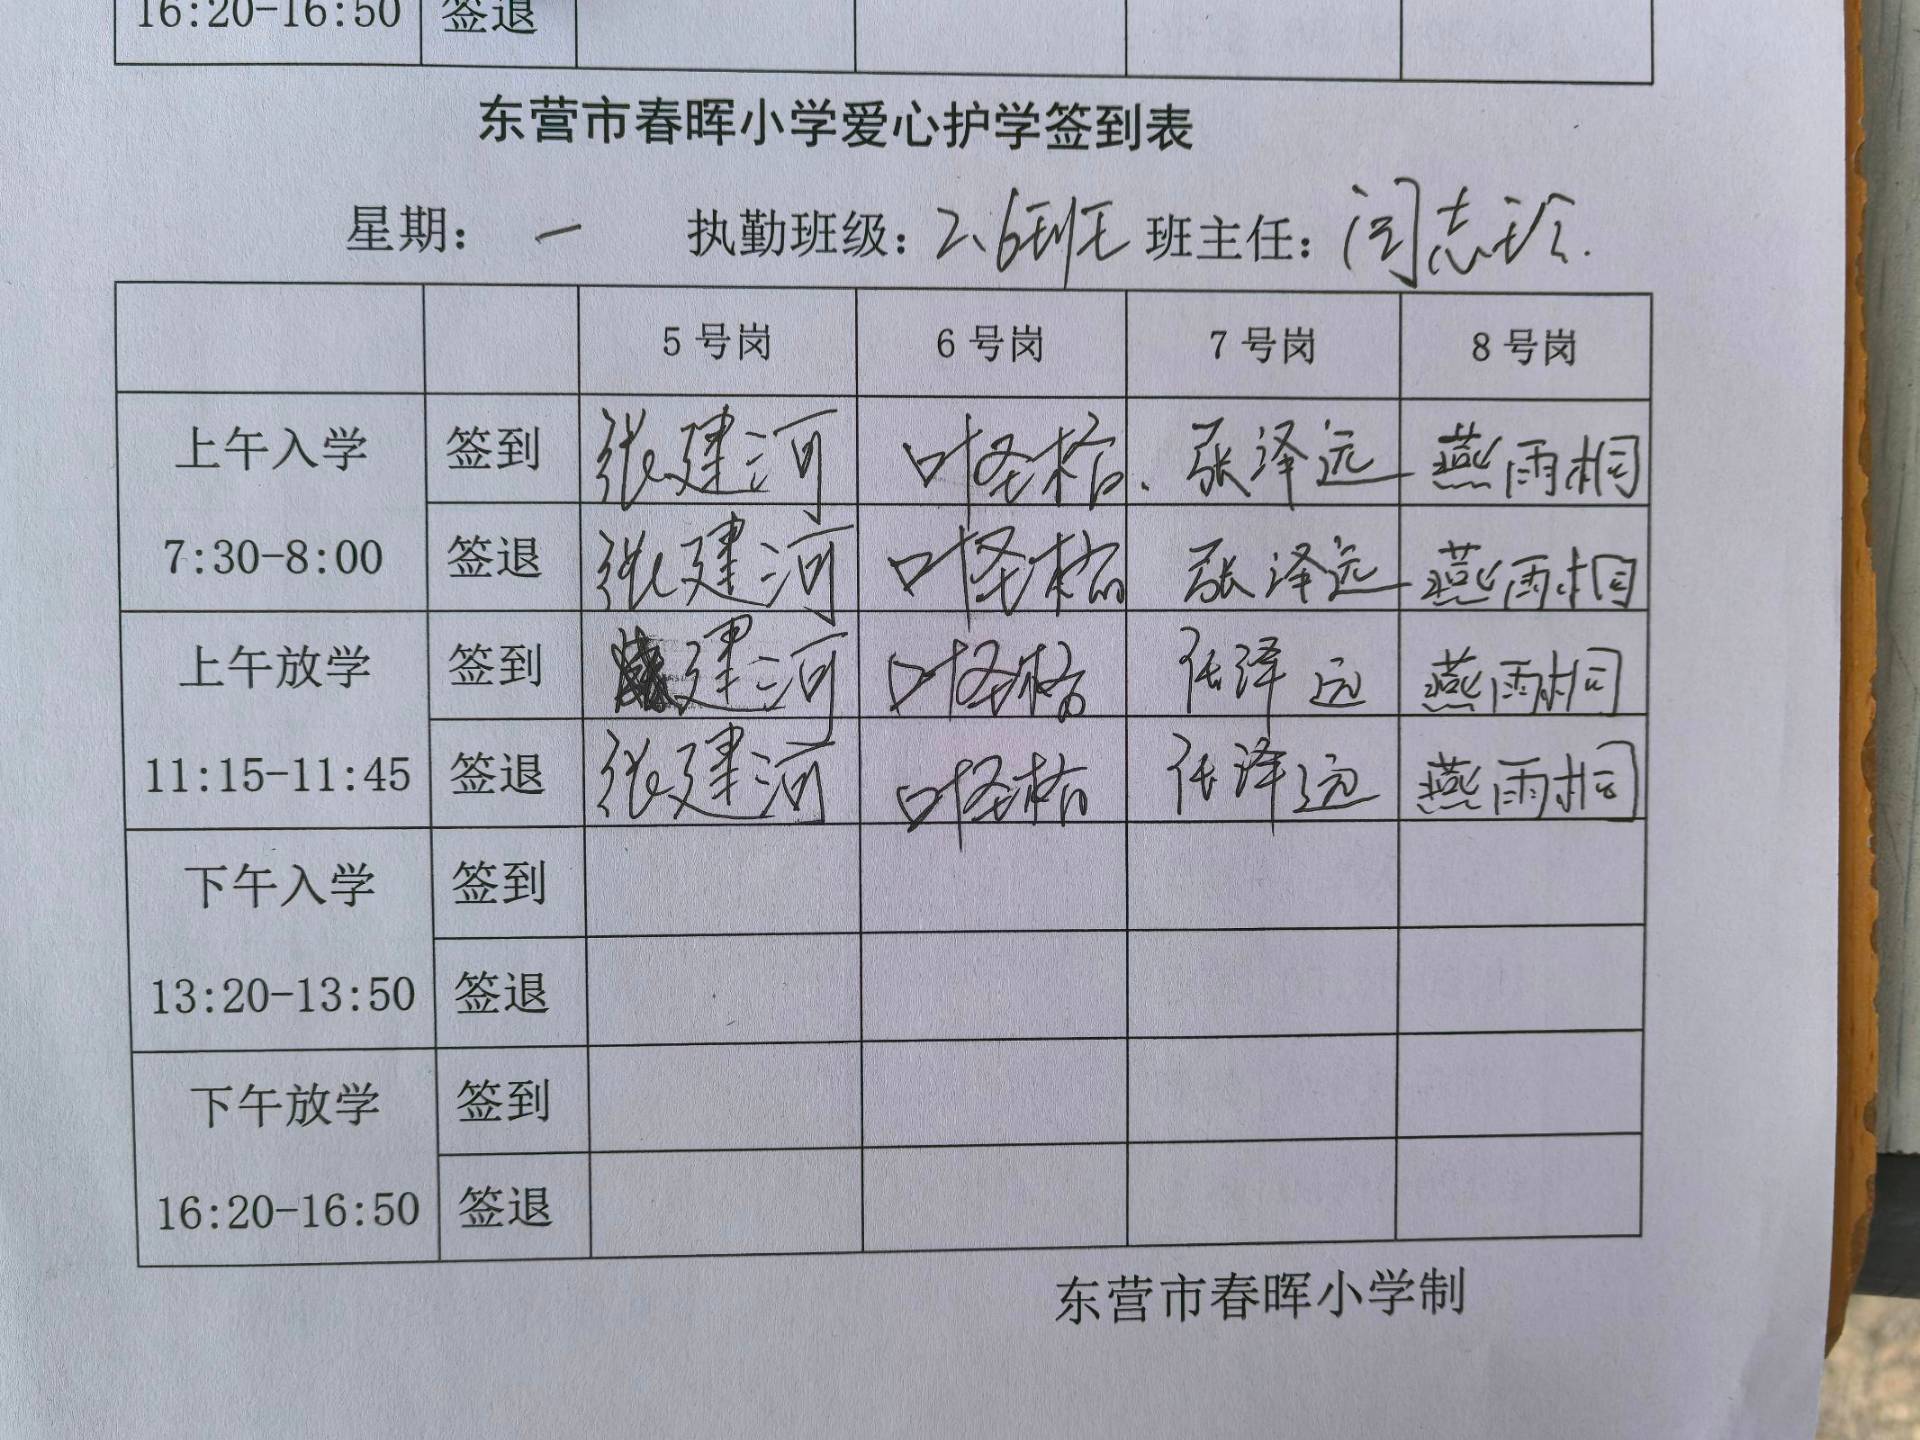 16:20-16:50 签退
东营市春晖小学爱心护学签到表
星期: 一 执勤班级: 2、6班 班主任: 闫志玲.
5号岗 6号岗 7号岗 8号岗
上午入学 签到 张建河 叶圣格. 张泽远 燕雨桐
7:30-8:00 签退 张建河 叶圣格 张泽远 燕雨桐
上午放学 签到 建河 叶圣格 张泽远 燕雨桐
11:15-11:45 签退 张建河 叶圣格 张泽远 燕雨桐
下午入学 签到
13:20-13:50 签退
下午放学 签到
16:20-16:50 签退
东营市春晖小学制